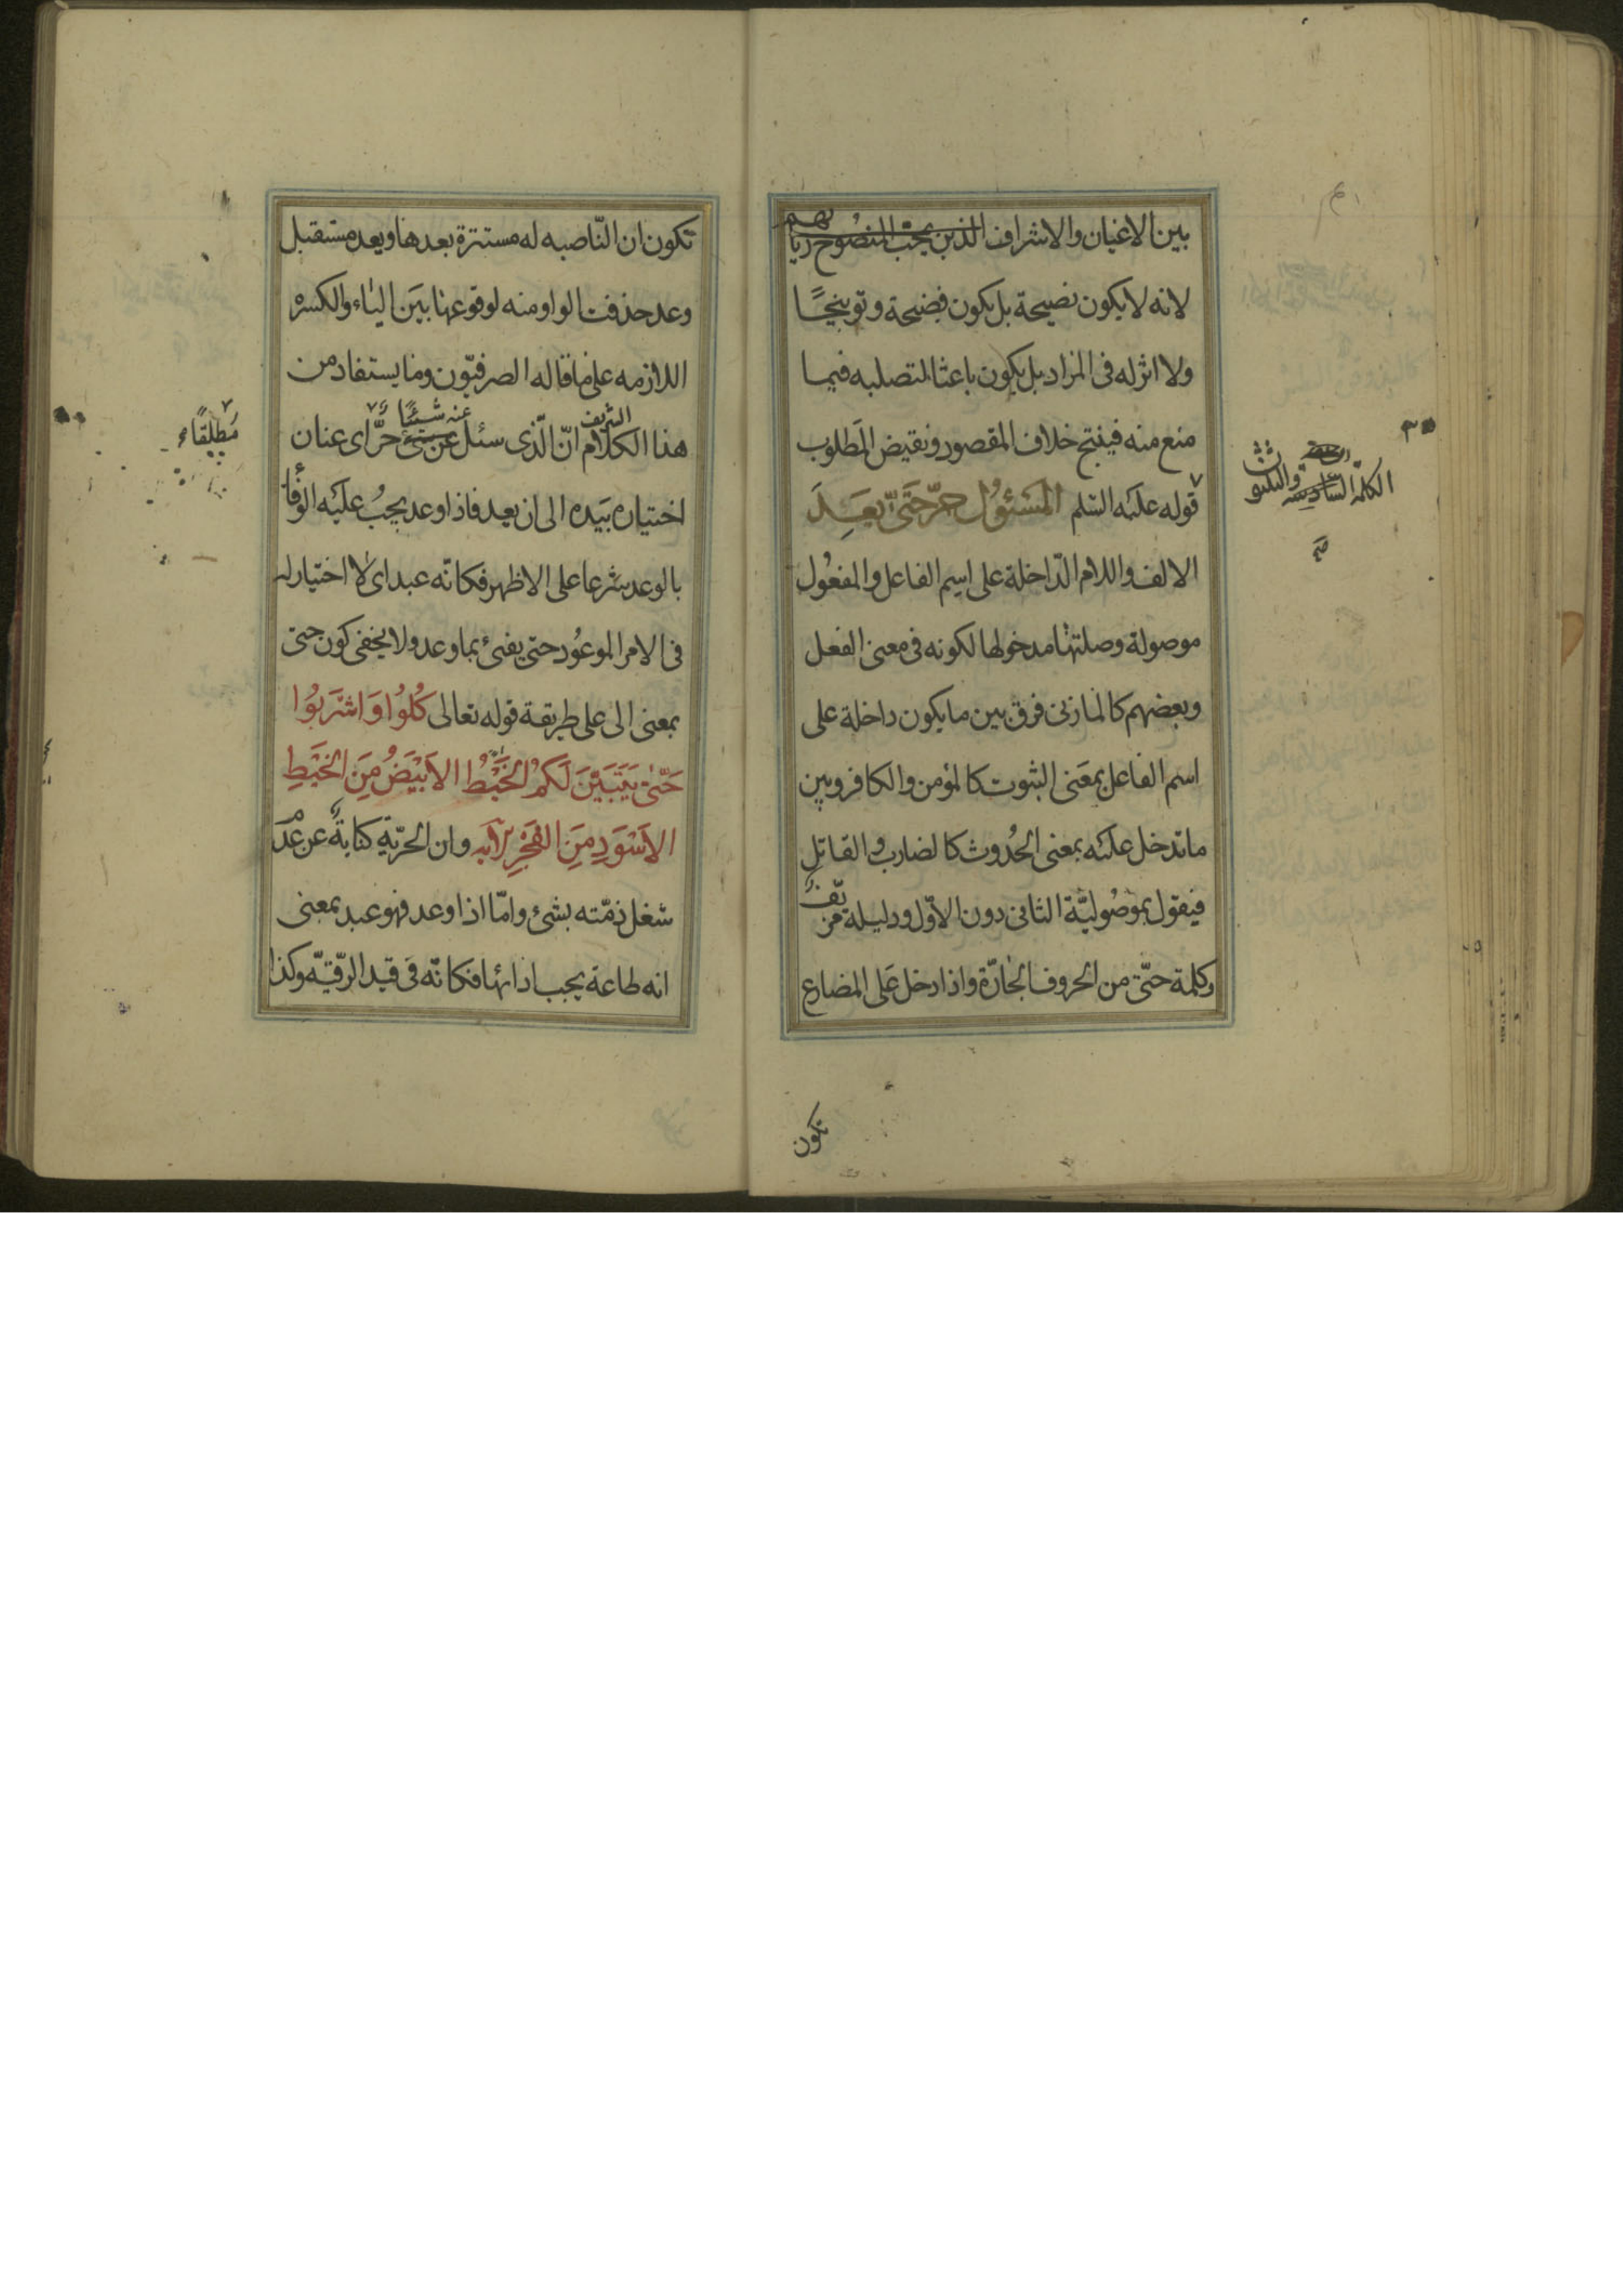 بين الاعيان والاشراف الذين يجب المنصوح ريا
بهم
لانه لا يكون نصيحة بل يكون فضيحة وتوبيخًا
ولا اثر له فى المراد بل يكون باعثا لتصلبه فيما
منع منه فينتج خلاف المقصود ونقيض المطلوب
قوله عليه السّلم المَسْئوُل حرّ حَتّى يَعِدَ
الالف واللام الدّاخلة على اسم الفاعل والمفعُول
موصولة وصلتها مدخولها لكونه فى معنى الفعل
وبعضهم كالمازنى فرق بين ما يكون داخلة على
اسم الفاعل بمعَنى الثبوت كالمؤمن والكافر وبين
ما تدخل عليه بمعنى الحُدوث كالضارب والقاتل
فيقول بموصُوليّة الثانى دون الاوّل ودليله
وكلمة حتّى من الحروف الجارّة واذا دخل عَلى المضارع
تكون
الكلمة السّادسة والثلثون
تكون ان النّاصبه له مستترة بعدها ويعد مستقبل
وعد حذفت الواو منه لوقوعها بيَن الياء والكسره
اللازمه على ما قاله الصرفيّون وما يستفاد من
هذا الكلام الشريف انّ الّذى سئل عن شئ عنه شيئًا حرَّ اى عنان
مُطلقًا
اختياره بيَده الى ان يعد فاذا وعد يجبُ عليَه الوفا
بالوعد شرعا على الاظهر فكانّه عبد اى لا اختيار له
فى الامر الموعُود حتى يفىَ بما وعد ولا يخفى كون حتى
بمعنى الى على طريقة قوله تعالى كُلوُا وَاشْرَبُوا
حَتّىٰ يَتَبَيَّنَ لَكُمُ الخَيْطُ الاَبْيَضُ مِنَ الخَيْطِ
الاَسْوَدِ مِنَ الفَجْرِ الآيه وان الحرّيّة كناية عن عدَم
شغل ذمّته بشئ وامّا اذا وعد فهو عبد بمعنى
انه طاعة يجب ادائها فكانّه فى قيد الرّقيّه وكذا